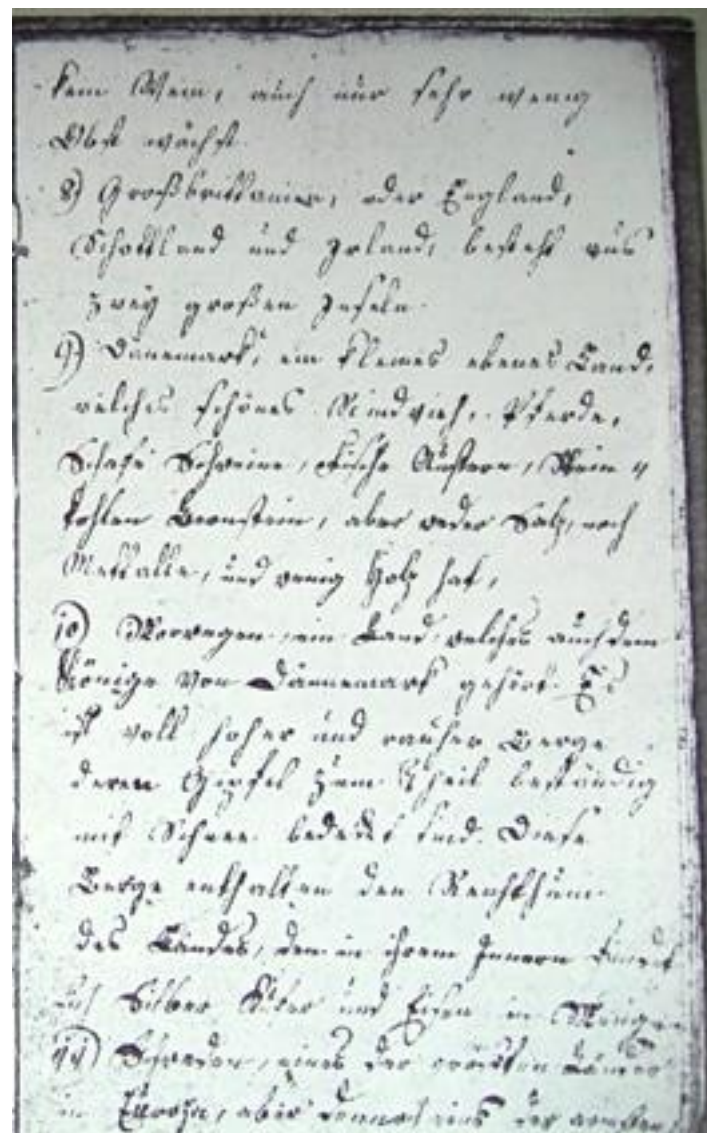 kein Wein, auch nur sehr wenig
Obst wächst.
8) Großbrittanien, oder England,
Schottland und Irland, besteht aus
zwey großen Inseln.
9) Dänemark, ein kleines ebenes Land,
welches schönes Rindvieh, Pferde,
Schafe Schweine, Fische Austern, Stein
kohlen Bernstein, aber weder Salz, noch
Metalle, und wenig Holz hat,
10) Norwegen, ein Land welches auch dem
Könige von Dännemark gehört. Es
ist voll hoher und rauher Berge
deren Gipfel zum Theil beständig
mit Schnee bedeckt sind. Diese
Berge enthalten den Reichthum
des Landes, denn in ihrem Innern findet
sich Silber Kupfer und Eisen in Menge
11) Schweden, eines der größten Länder
in Europa, aber dennoch eins der